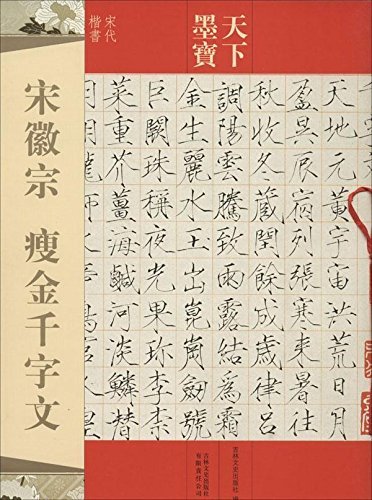 天下
墨寶
宋代
楷書
宋徽宗 瘦金千字文
天地元黃宇宙洪荒日月
盈昃辰宿列張寒来暑往
秋收冬藏閏餘成歲律呂
調陽雲騰致雨露結為霜
金生麗水玉出崑崗劍號
巨闕珠稱夜光果珍李柰
菜重芥薑海鹹河淡鱗替
吉林文史出版社
吉林文史出版社